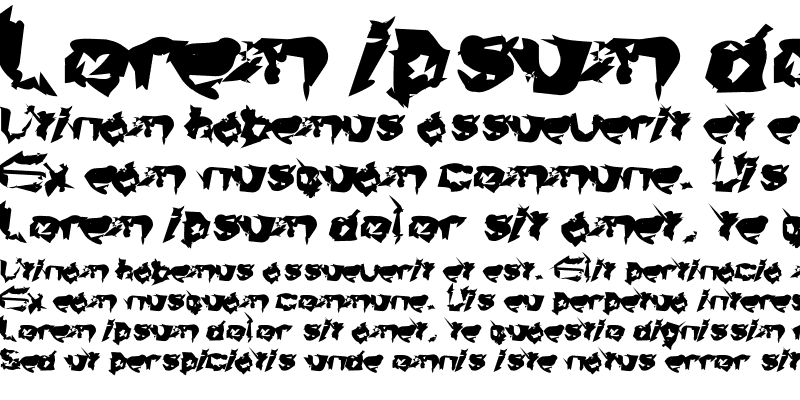 Lorem ipsum do
Utinam habemus assueverit et e
Ex eam nusquam commune. Vis
Lorem ipsum dolor sit amet, te q
Utinam habemus assueverit et est. Elit pertinacia
Ex eam nusquam commune. Vis eu perpetua interes
Lorem ipsum dolor sit amet, te questio dignissim
Sed ut perspiciatis unde omnis iste natus error sit